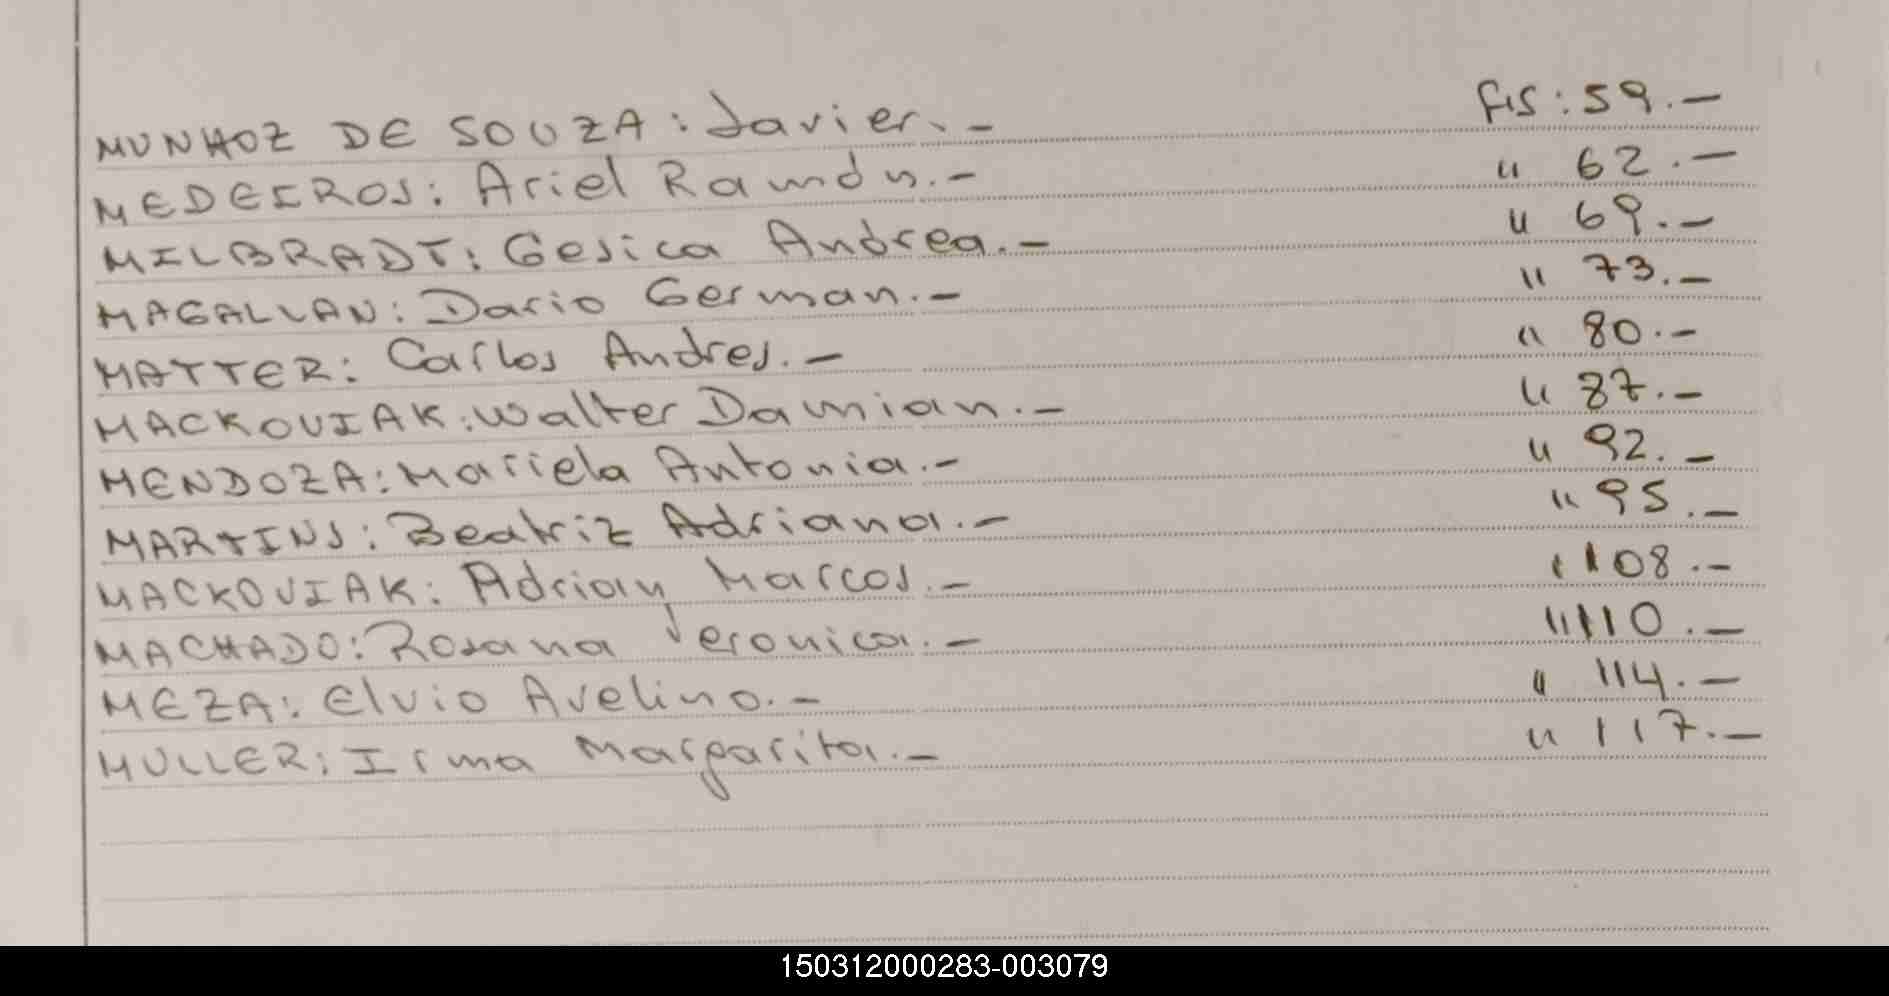 MUNHOZ DE SOUZA: Javier.- Fls: 59.-
MEDEIROS: Ariel Ramón.- " 62.-
MILBRADT: Gesica Andrea.- " 69.-
MAGALLAN: Dario German.- " 73.-
MATTER: Carlos Andres.- " 80.-
MACKOVIAK: Walter Damian.- " 87.-
MENDOZA: Mariela Antonia.- " 92.-
MARTINS: Beatriz Adriana.- " 95.-
MACKOVIAK: Adrian Marcos.- " 108.-
MACHADO: Rosana Veronica.- " 110.-
MEZA: Elvio Avelino.- " 114.-
MULLER: Irma Margarita.- " 117.-
150312000283-003079